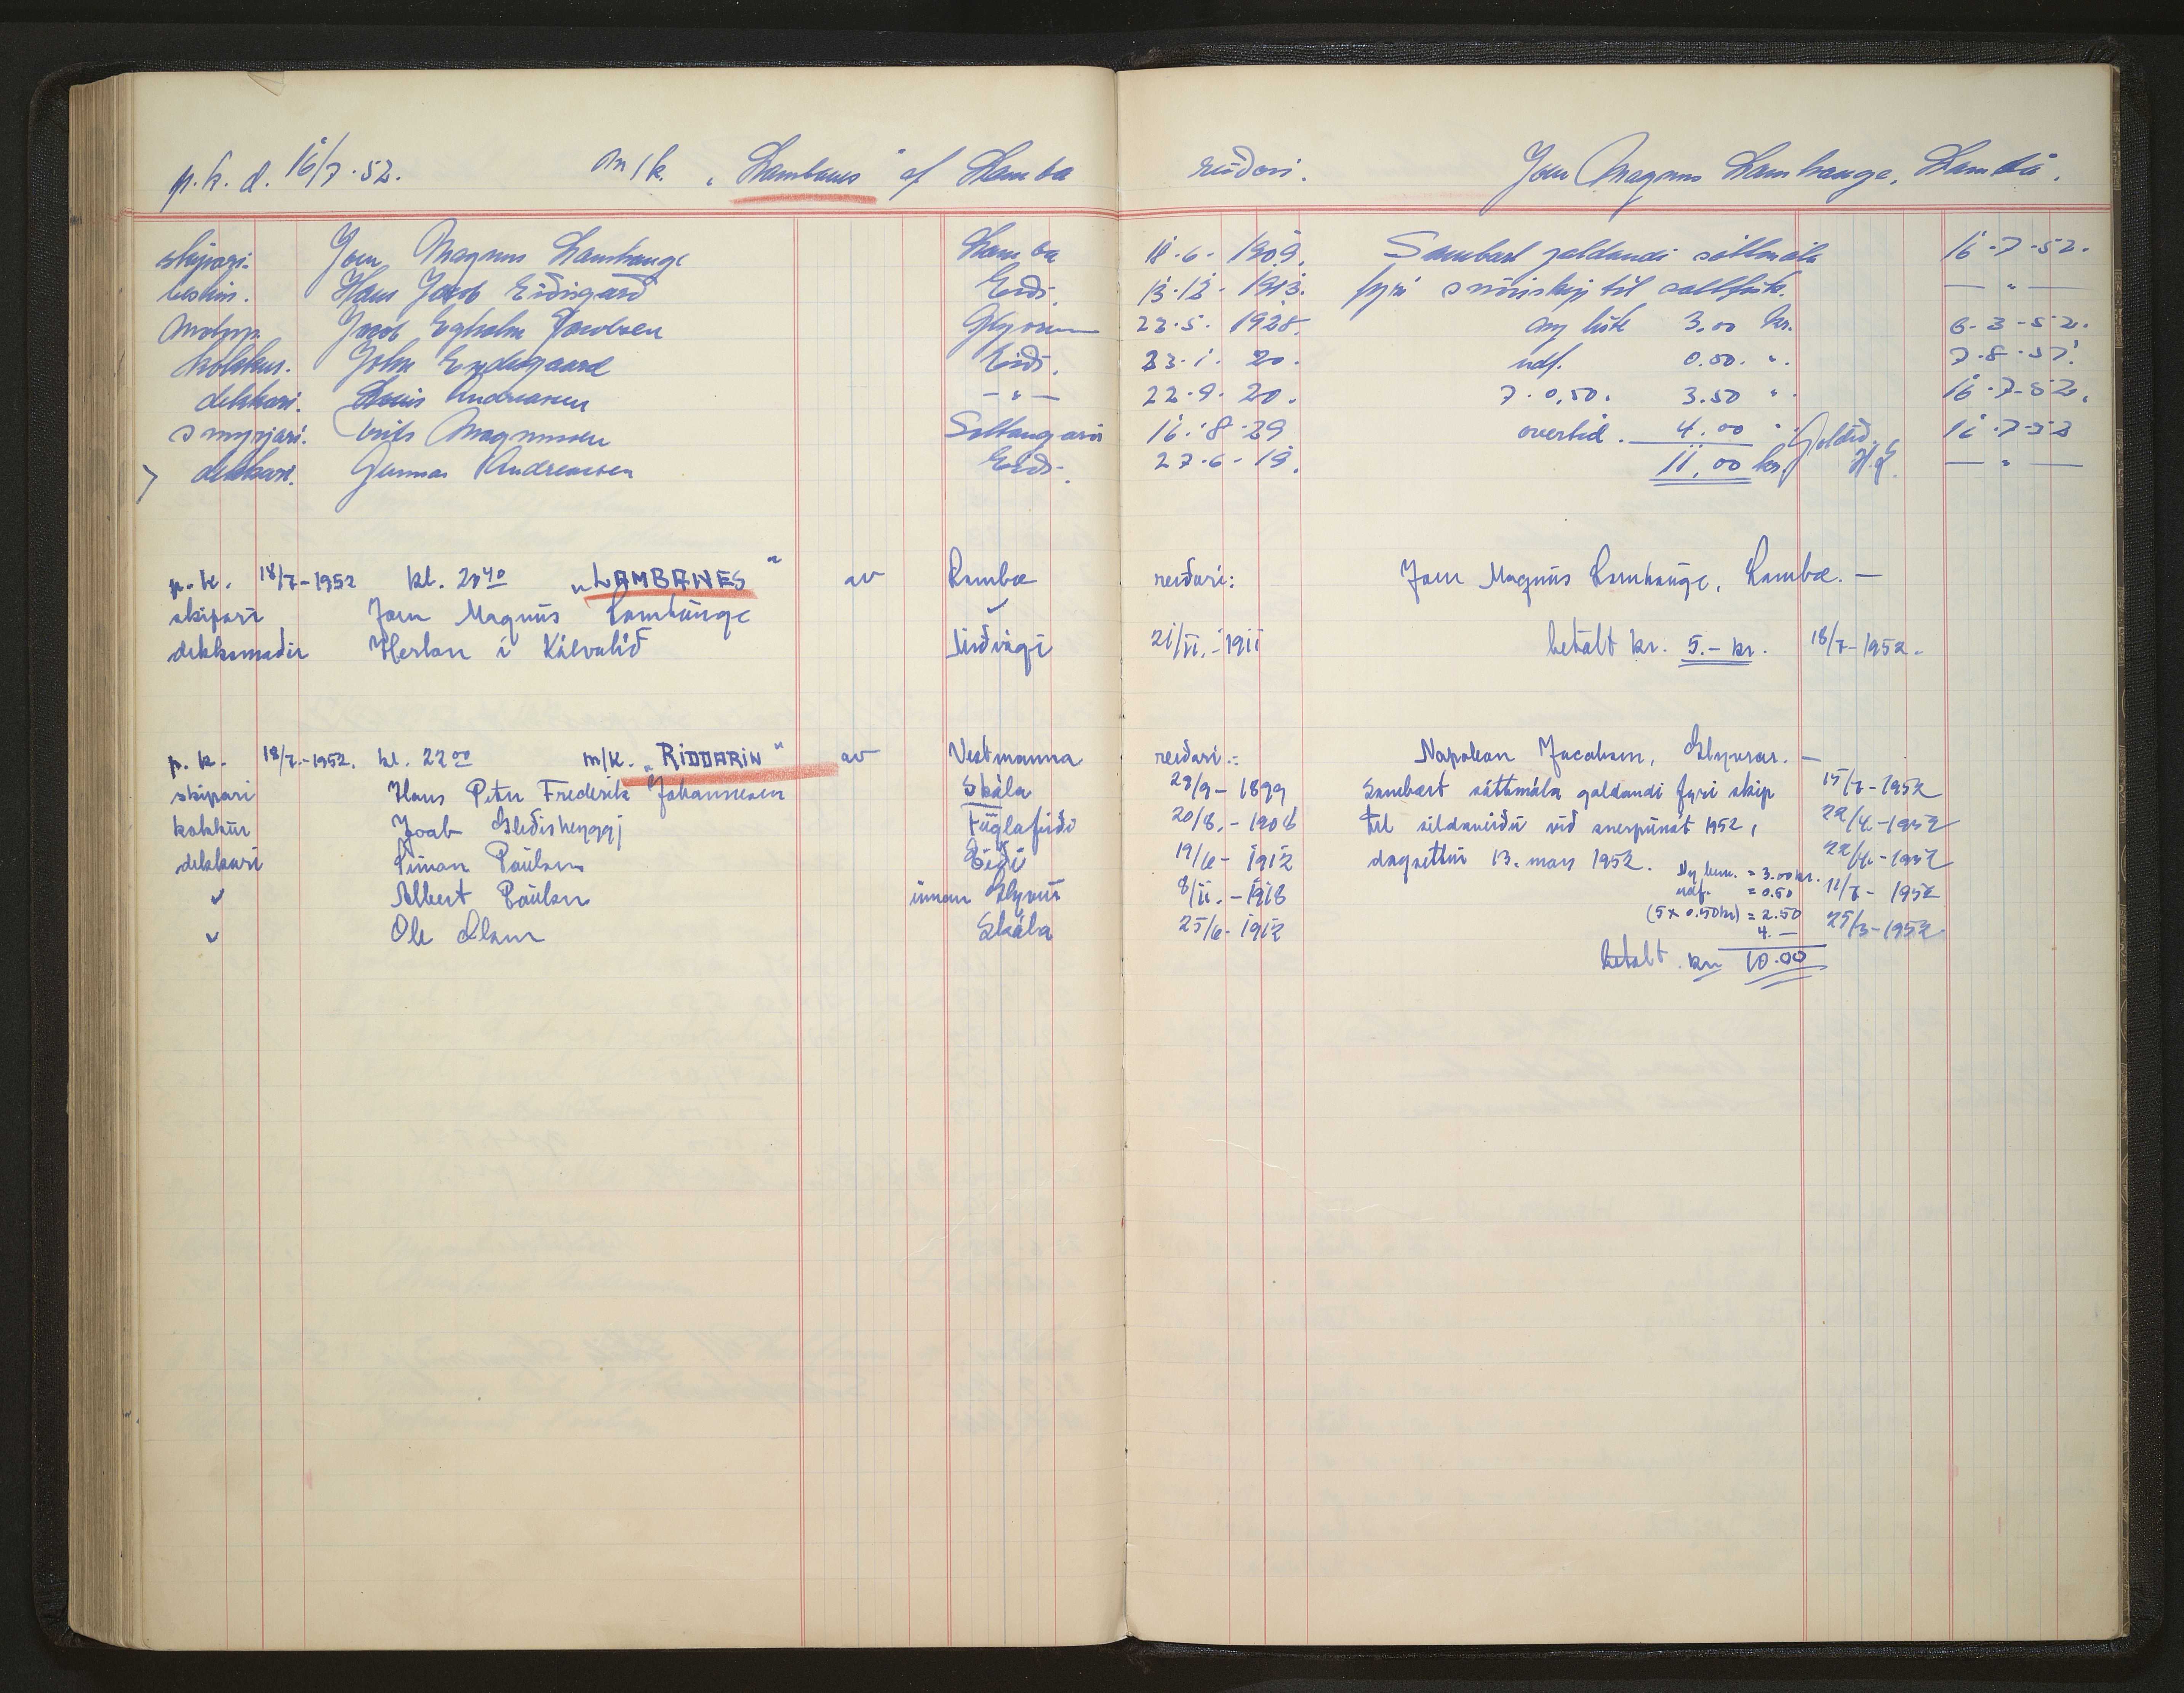 p.k. d. 16/7-52. m/k. „Lambanes" af Lamba reiðari. Joen Magnus Lamhauge, Lamba.
skipari. Joen Magnus Lamhauge Lamba 11-6-1909. Sambært galdandi sáttmála 16-7-52.
bestim. Hans Jacob Eiðisgarð Eiði. 13-12-1913. fyri snøriskip til saltfisk. — " —
Motorp. Jacob Egholm Jacobsen Glyvrum 22-5-1928. ny liste 3,00 kr. 6-3-52.
kokkur. John Eysturgaard Eiði. 23-1-20. udf. 0.50. ". 7-8-51.
dekkari. Louis Andreasen — " — 22-9-20. 7·0,50. 3.50 ". 16-7-52.
smyrjari. Magnussen Saltangará 16-8-29 overtid. 4.00 " Goldið. 16-7-52
dekkari. Gunnar Andreasen Eiði. 27-6-19. 11,00 kr. — " —
p.k. 18/7-1952 kl. 20 40 „LAMBANES" av Lamba reiðari: Joen Magnus Lamhauge, Lamba. —
skipari Joen Magnus Lamhauge ✓
dekksmaður Herlon í Kálvalíð Lirðvági 21/11.-1911 betalt kr. 5.- kr. 18/7-1952.
p.k. 18/7-1952. kl. 22 00 m/k. „RIDDARIN" av Vestmanna reiðari:= Napoleon Jacobsen, Glyvrar. —
skipari Hans Petur Frederik Johannesen Skála 29/9-1899 Sambært sáttmála galdandi fyri skip 15/7-1952
kokkur Joab Gleðisheyggj Fuglafirði 20/8.-1908 til sildaveiðu við snerpinót 1952, 22/4-1952
dekkari Simon Paulsen Eiði 19/6-1912 dagsettur 13. mars 1952. Ny = 3.00 kr. 22/4-1952
✓ Albert Paulsen innan Glyvur 8/11.-1918 udf. = 0.50 11/7-1952
✓ Ole Olsen Skála 25/6-1912 (5 x 0.50 kr) = 2.50 25/3-1952
4. —
betalt kr 10.00